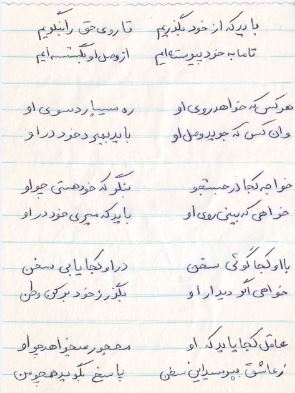 باید که از خود بگذریم تا روی حق را بنگریم
تا ما به خود پیوسته ایم از وصل او بگسسته ایم
هر کس که خواهد روی او ره میسپارد سوی او
وان کس که جوید وصل او باید بمیرد خود در او
خواجه کجا در جستجو بنگر که خود هستی چو او
خواهی که بینی روی او باید که میری خود در او
با او کجا گوئی سخن در او کجا یابی سخن
خواهی اگر دیدار او بگذر ز خود برکن وطن
عاقل کجا باید که او مهجور میخواهد چو او
ز عاشقی بپرسید این سخن پاسخ بگوید همچو من